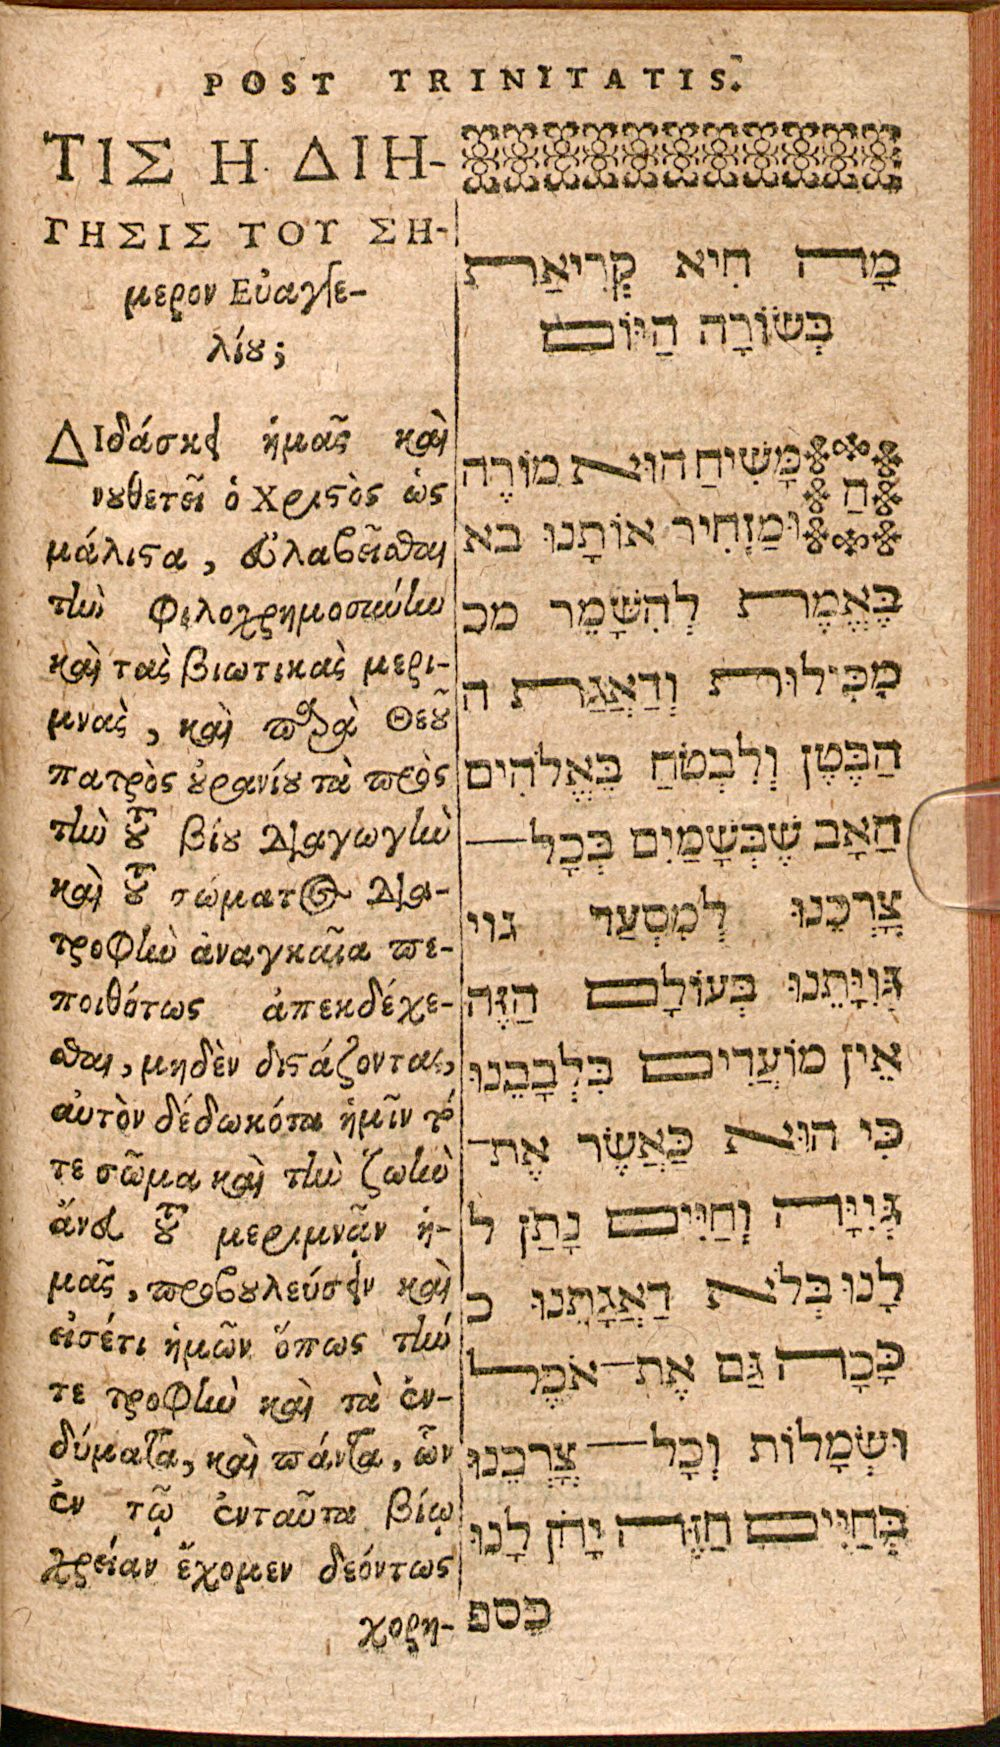 POST TRINITATIS.
ΤΙΣ Η ΔΙΗ-
ΓΗΣΙΣ ΤΟΥ ΣΗ-
μερον Εὐαγγε-
λίου;
ΔΙδάσκει ἡμᾶς καὶ
νουθετεῖ ὁ Χριστὸς ὡς
μάλιστα, εὐλαβεῖσθαι
τὴν φιλοχρημοσύνην
καὶ τὰς βιωτικὰς μερι-
μνας, καὶ παρὰ Θεοῦ
πατρὸς οὐρανίου τὰ πρὸς
τὴν τοῦ βίου διαγωγὴν
καὶ τοῦ σώματος δια-
τροφὴν ἀναγκαῖα πε-
ποιθότως ἀπεκδέχε-
σθαι, μηδὲν διστάζοντας,
αὐτὸν δέδωκότα ἡμῖν τό
τε σῶμα καὶ τὴν ζωὴν
ἄνευ τοῦ μεριμνᾷν ἡ-
μᾶς, προβουλεύσειν καὶ
εἰσέτι ἡμῶν ὅπως τήν
τε τροφὴν καὶ τὰ ἐν-
δύματα, καὶ πάντα, ὧν
ἐν τῷ ἐνταῦτα βίῳ
χρείαν ἔχομεν δεόντως
χορη-
מָה הִיא קְרִיאַת
בְּשׂוֹרָה הַיּוֹם
הַמָּשִׁיחַ הוּא מוֹרֶה
וּמַזְהִיר אוֹתָנוּ בא
בֶּאֱמֶת לְהִשָּׁמֵר מכ
מִכִּילוּת וְדַאֲגַת ה
הַבֶּטֶן וְלִבְטֹחַ בֵּאֱלֹהִים
הַאָב שֶׁבְּשָׁמַיִם בְּכָל—
צָרְכֵנוּ לְמִסְעַד גוי
גְּוִיָּתֵנוּ בְּעוֹלָם הַזֶּה
אֵין מוֹעֲדִים בִּלְבָבֵנוּ
כִּי הוּא כַּאֲשֶׁר אֶת—
גְּוִיָּה וְחַיִּים נָתַן ל
לָנוּ בְּלֹא דַאֲגָתֵנוּ כ
כָּכָה גַּם אֶת—אֹכֶל
וּשְׂמָלוֹת וְכָל—צָרְכֵנוּ
בְּחַיִּים הַזֶּה יִתֵּן לָנוּ
כֶּסֶף